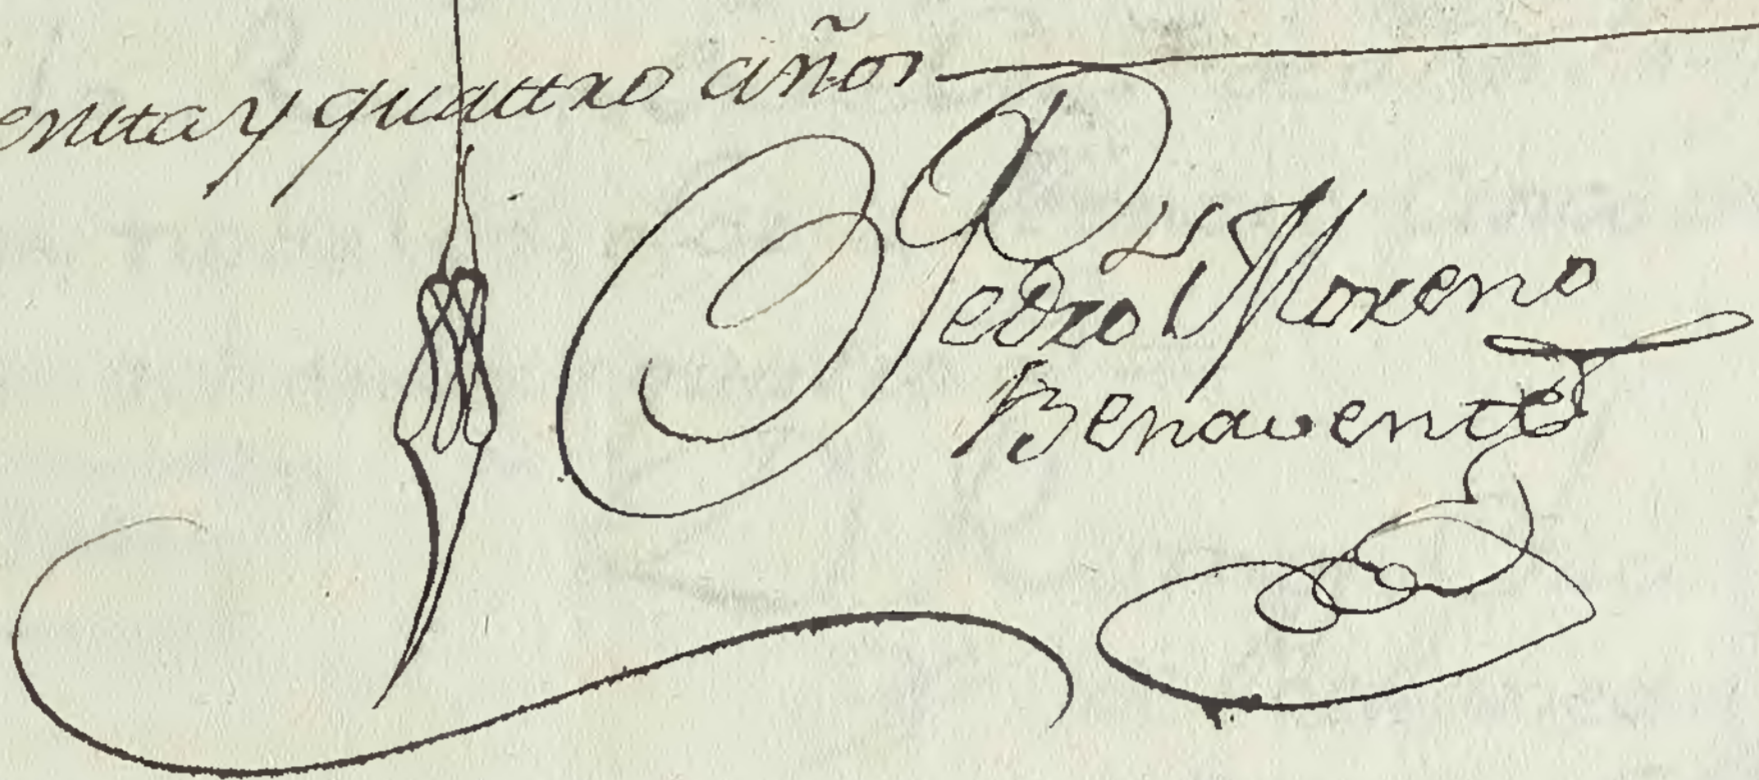 entta y quattro años
Pedro Moreno
Benavente